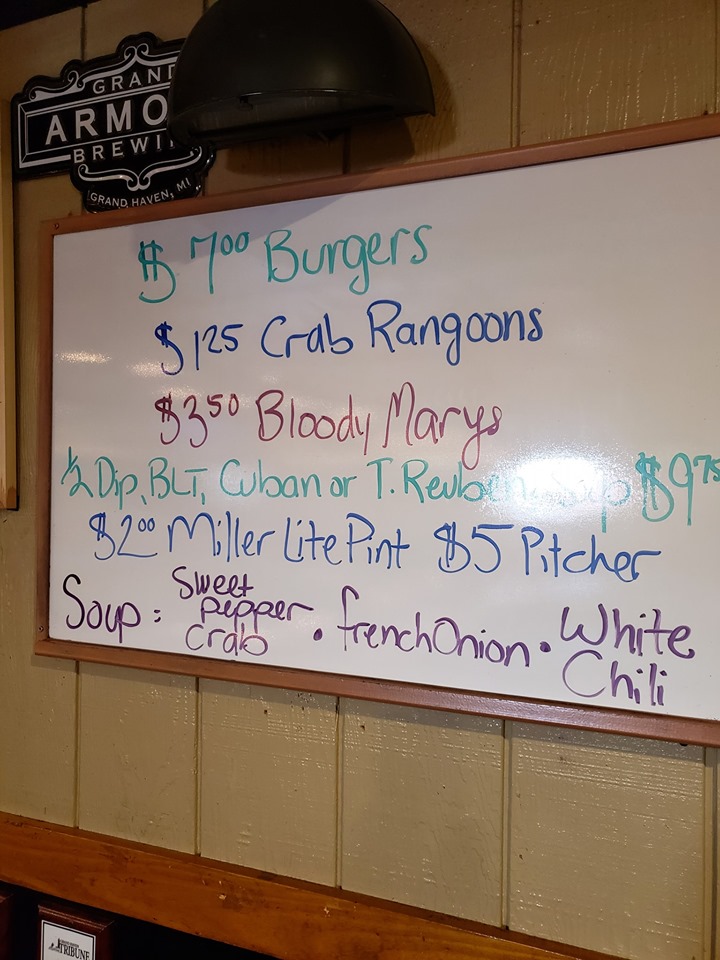 GRAND
ARMO
BREWI
GRAND HAVEN, MI
$7.00 Burgers
$1.25 Crab Rangoons
$3.50 Bloody Marys
1/2 Dip, BLT, Cuban or T. Reuben Soup $9.75
$2.00 Miller Lite Pint $5 Pitcher
Soup: Sweet pepper crab • french Onion • White Chili
TRIBUNE